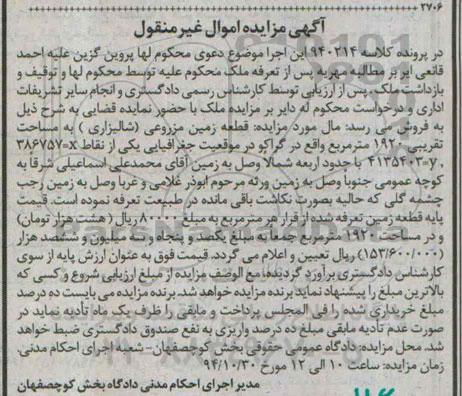 ۲۷۰۶
آگهی مزایده اموال غیر منقول
در پرونده کلاسه ۹۴۰۲۱۴ این اجرا موضوع دعوی محکوم لها پروین گزین علیه احمد
قانعی ایر بر مطالبه مهریه پس از تعرفه ملک محکوم علیه توسط محکوم لها و توقیف و
بازداشت ملک، پس از ارزیابی توسط کارشناس رسمی دادگستری و انجام سایر تشریفات
اداری و درخواست محکوم له دایر بر مزایده ملک با حضور نماینده قضایی به شرح ذیل
به فروش می رسد: مال مورد مزایده: قطعه زمین مزروعی (شالیزاری) به مساحت
تقریبی ۱۹۲۰ مترمربع واقع در گراکو در موقعیت جغرافیایی یکی از نقاط x=۳۸۶۷۵۷
، y=۴۱۳۵۴۰۳ با حدود اربعه شمالا وصل به زمین آقای محمدعلی اسماعیلی شرقا به
کوچه عمومی جنوبا وصل به زمین ورثه مرحوم ابوذر غلامی و غربا وصل به زمین رجب
چشمه گلی که حالیه بصورت نکاشت باقی مانده در طبیعت تعرفه نموده است. قیمت
پایه قطعه زمین تعرفه شده از قرار هر مترمربع به مبلغ ۸۰۰۰۰ ریال (هشت هزار تومان)
و در مساحت ۱۹۲۰ مترمربع جمعا به مبلغ یکصد و پنجاه و سه میلیون و ششصد هزار
(۱۵۳/۶۰۰/۰۰۰) ریال تعیین و اعلام می گردد. قیمت فوق به عنوان ارزش پایه از سوی
کارشناس دادگستری برآورد گردیده، مع الوصف مزایده از مبلغ ارزیابی شروع و کسی که
بالاترین مبلغ را پیشنهاد نماید برنده مزایده خواهد شد. برنده مزایده می بایست ده درصد
مبلغ خریداری شده را فی المجلس پرداخت و مابقی را ظرف یک ماه تأدیه نماید در
صورت عدم تادیه مابقی مبلغ ده درصد واریزی به نفع صندوق دادگستری ضبط خواهد
شد. محل مزایده: دادگاه عمومی حقوقی بخش کوچصفهان - شعبه اجرای احکام مدنی.
زمان مزایده: ساعت ۱۰ الی ۱۲ مورخ ۹۴/۱۰/۳۰
مدیر اجرای احکام مدنی دادگاه بخش کوچصفهان